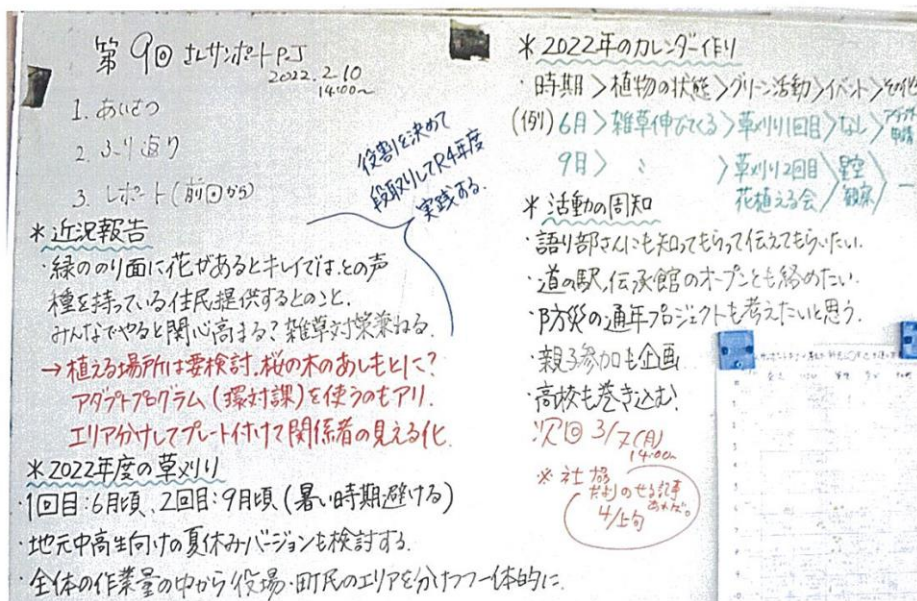 第9回 サポートPJ
2022.2.10
14:00~
1. あいさつ
2. ふり返り
3. レポート(前回から)
役割を決めて
段取りしてR4年度
実践ある.
*近況報告
・緑ののり面に花があるとキレイでは、との声
種を持っている住民提供するとのこと.
みんなでやると関心高まる?雑草対策兼ねる.
→植える場所は要検討.桜の木のあしもとに?
アダプトプログラム(環対課)を使うのもアリ.
エリア分けしてプレート付けて関係者の見える化
*2022年度の草刈り
・1回目:6月頃、2回目:9月頃(暑い時期避ける)
・地元中高生向けの夏休みバージョンも検討する.
・全体の作業量の中から役場・町民のエリアを分けつつ一体的に.
*2022年のカレンダー作り
・時期>植物の状態>グリーン活動>イベント>その他
(例)6月>雑草伸びてくる>草刈り1回目>なし>アダプト申請
9月> 〃 >草刈り2回目 花植える会>星空観察>―
*活動の周知
・語り部さんにも知ってもらって伝えてもらいたい.
・道の駅、伝承館のオープンとも絡めたい.
・防災の通年プロジェクトも考えたいと思う.
・親子参加も企画
・高校も巻き込む!
次回 3/7(月)
14:00~
※社協
だよりのせる記事
あれば。
4/上旬